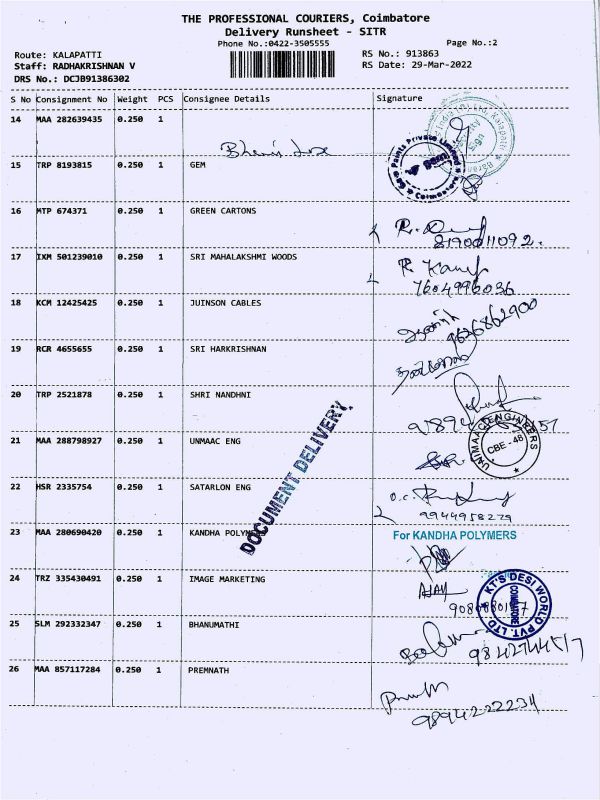 THE PROFESSIONAL COURIERS, Coimbatore
Delivery Runsheet - SITR
Phone No.:0422-3505555
Page No.:2
Route: KALAPATTI
RS No.: 913863
Staff: RADHAKRISHNAN V
RS Date: 29-Mar-2022
DRS No.: DCJB91386302
S No Consignment No Weight PCS Consignee Details Signature
14 MAA 282639435 0.250 1
15 TRP 8193815 0.250 1 GEM
Paints Private Limited
Coimbatore
16 MTP 674371 0.250 1 GREEN CARTONS
8190011092.
17 IXM 501239010 0.250 1 SRI MAHALAKSHMI WOODS
7604996036
18 KCM 12425425 0.250 1 JUINSON CABLES
9626862900
19 RCR 4655655 0.250 1 SRI HARKRISHNAN
20 TRP 2521878 0.250 1 SHRI NANDHNI
21 MAA 288798927 0.250 1 UNMAAC ENG
UNIMAAC ENGINEERS
CBE - 48
22 HSR 2335754 0.250 1 SATARLON ENG
9944958279
DOCUMENT DELIVERY
23 MAA 280690420 0.250 1 KANDHA POLYMERS
For KANDHA POLYMERS
24 TRZ 335430491 0.250 1 IMAGE MARKETING
KT'S DESI WORLD PVT. LTD
COIMBATORE
25 SLM 292332347 0.250 1 BHANUMATHI
9842744517
26 MAA 857117284 0.250 1 PREMNATH
9894222234